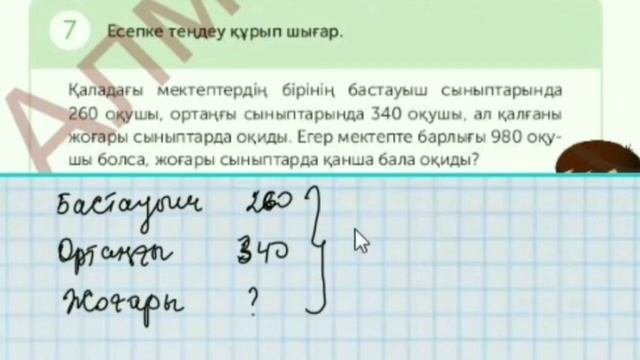 7 Есепке теңдеу құрып шығар.
Қаладағы мектептердің бірінің бастауыш сыныптарында
260 оқушы, ортаңғы сыныптарында 340 оқушы, ал қалғаны
жоғары сыныптарда оқиды. Егер мектепте барлығы 980 оқу-
шы болса, жоғары сыныптарда қанша бала оқиды?
Бастауыш 260
Ортаңғы 340
Жоғары ?